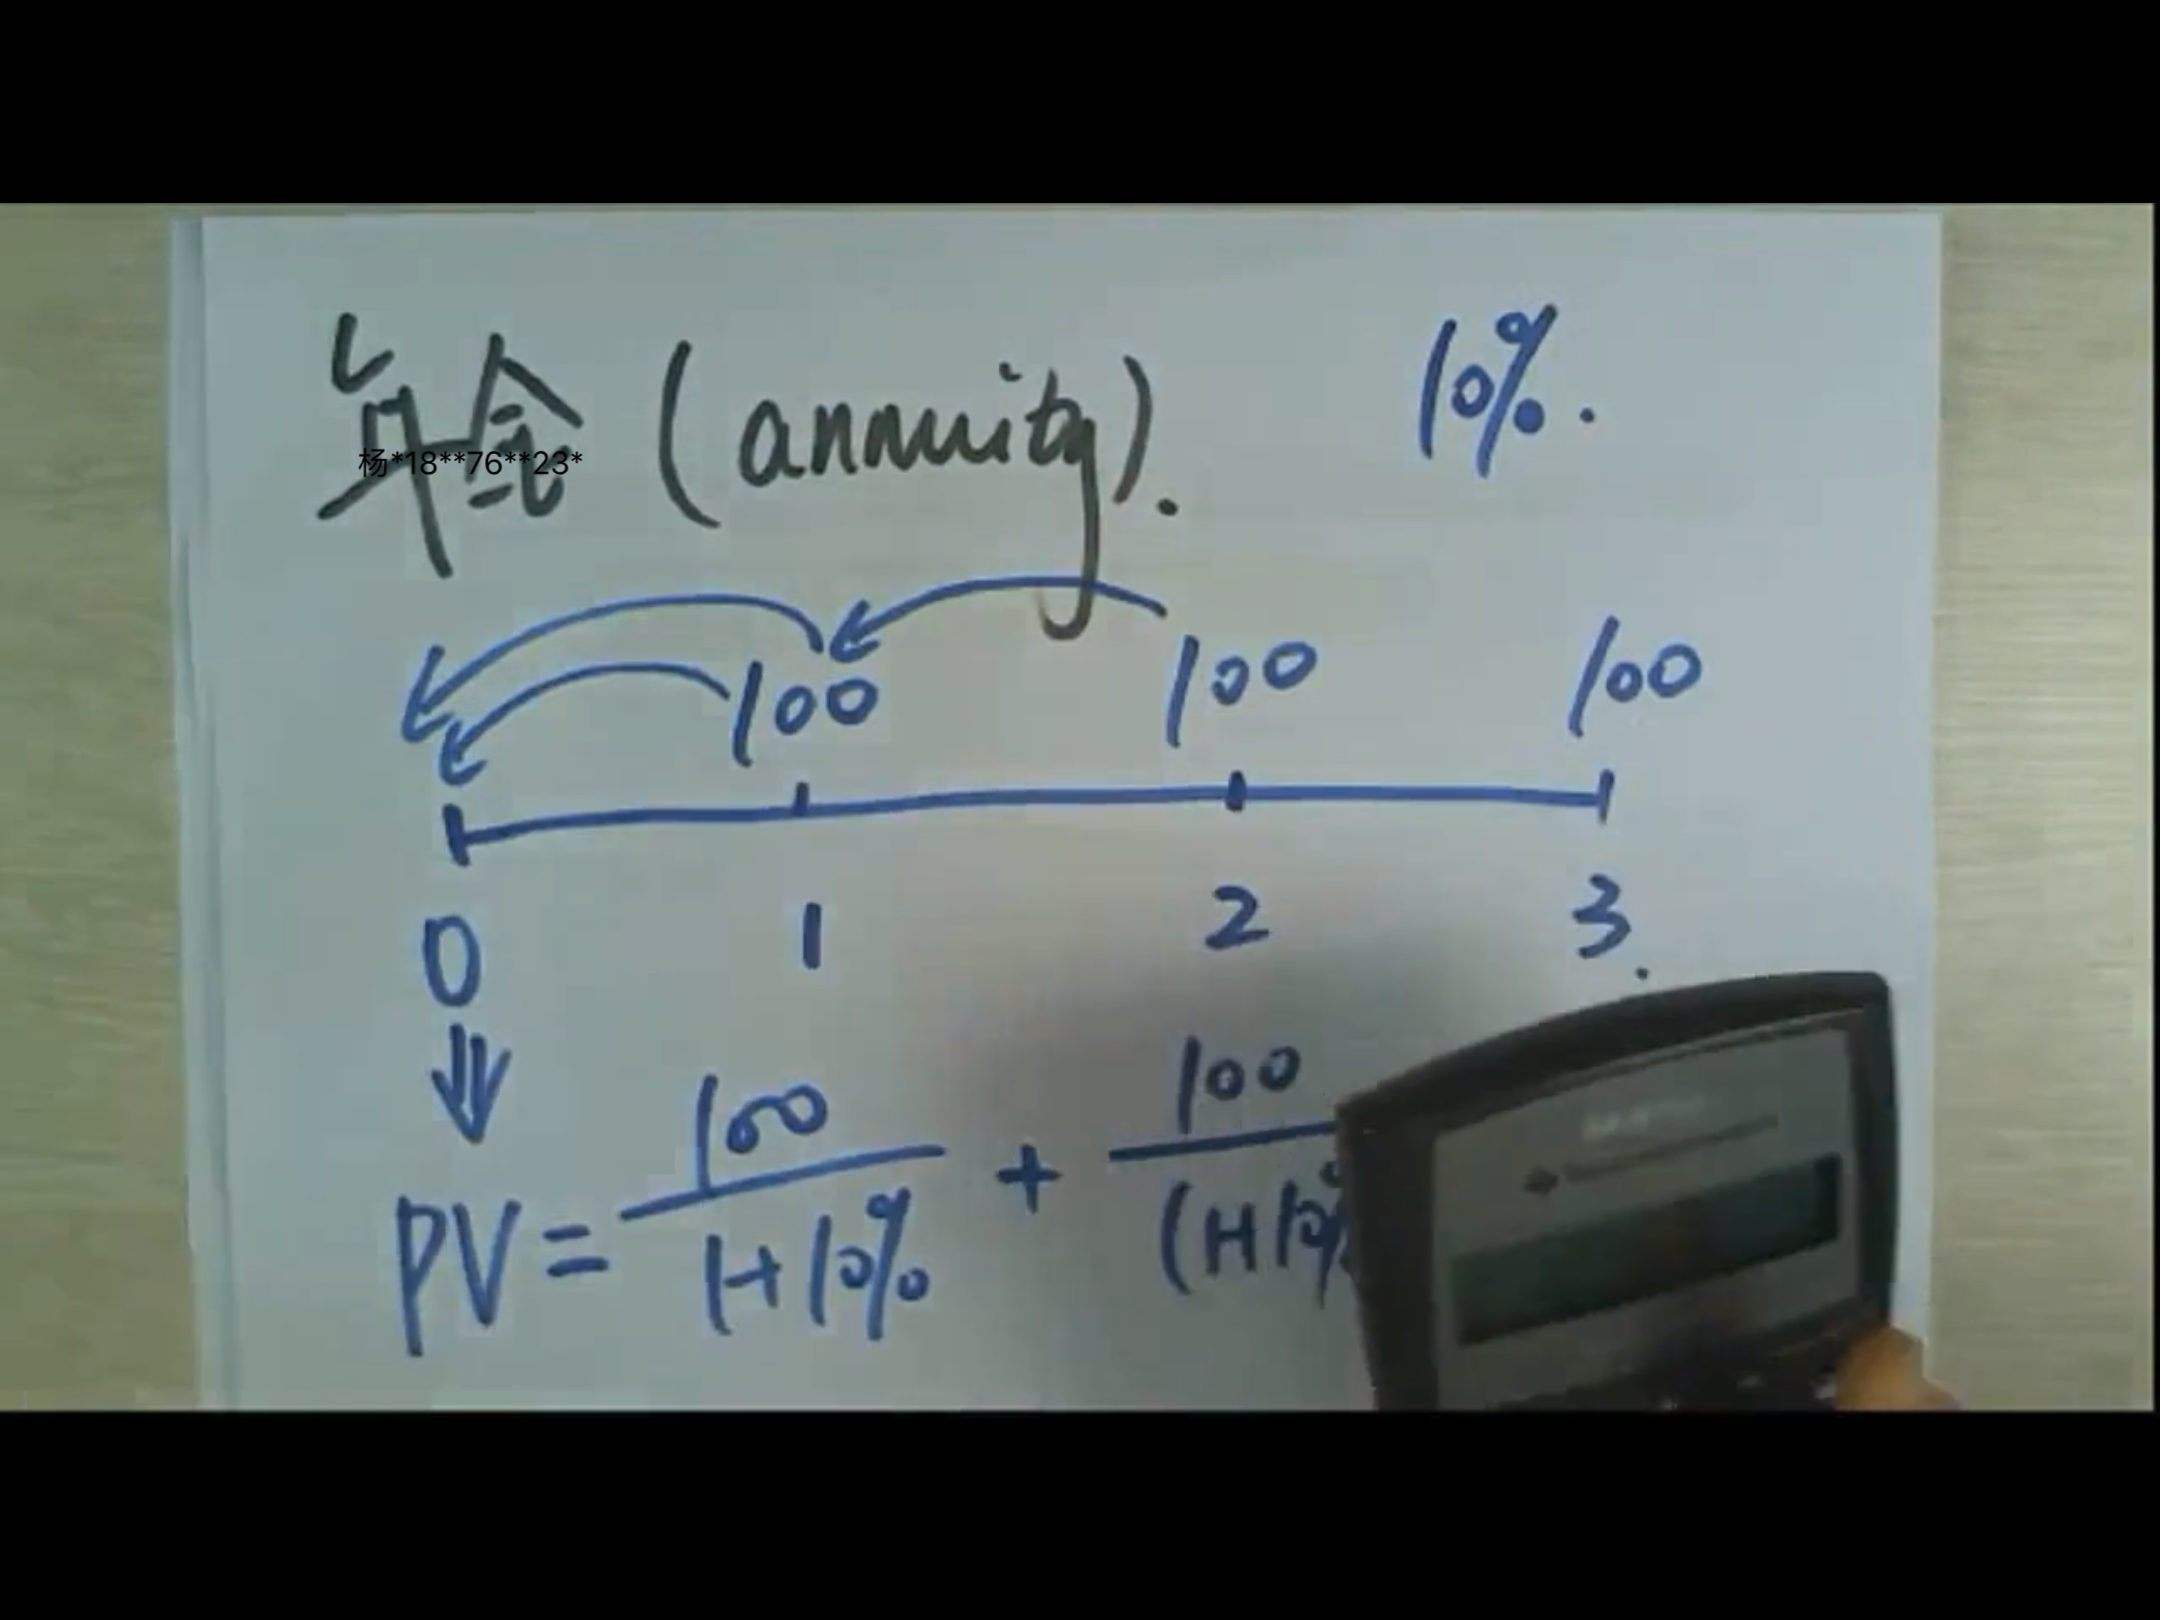 年金 (annuity). 10%.
杨*18**76**23*
100 100 100
0 1 2 3.
PV = 100 / 1+10% + 100 / (1+10%